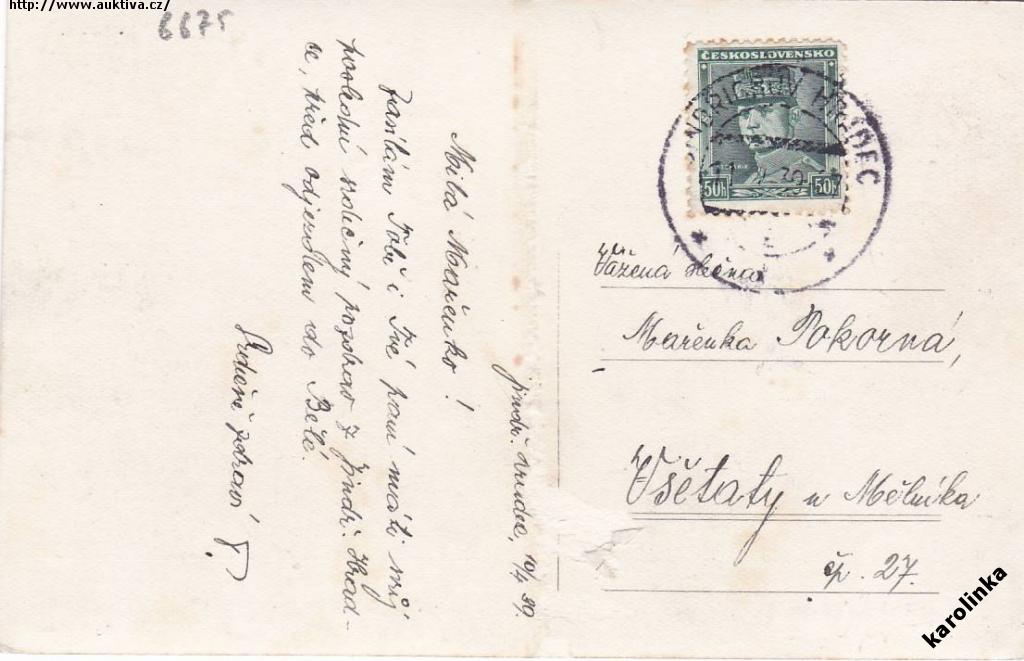 http://www.auktiva.cz/
6675
Jindř. Hradec, 10/4 30.
Milá Mařenko!
Zasílám Tobě i Tvé paní máti můj
poslední srdečný pozdrav z Jindř. Hrad-
ce, před odjezdem do Bělé.
Srdečně zdraví
ČESKOSLOVENSKO
50h 50h
JINDŘICHŮV HRADEC
Vážená slečna
Mařenka Pokorná,
Všetaty u Mělníka
čp. 27.
karolinka